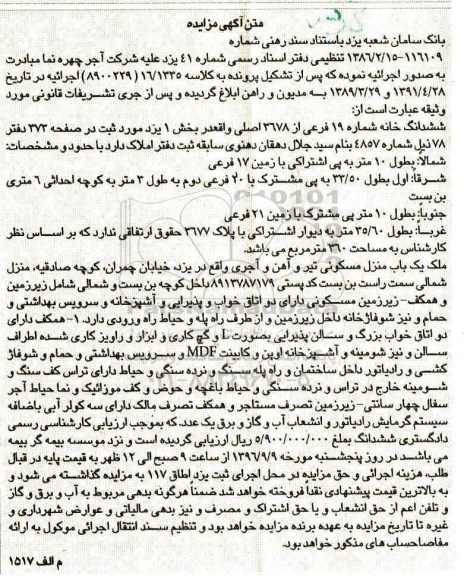 متن آگهی مزایده
بانک سامان شعبه یزد باستناد سند رهنی شماره
۱۱۶۱۰۹-۱۳۸۶/۲/۱۵ تنظیمی دفتر اسناد رسمی شماره ۴۱ یزد علیه شرکت آجر چهره نما مبادرت
به صدور اجرائیه نموده که پس از تشکیل پرونده به کلاسه ۱۶/۱۳۳۵ (۸۹۰۰۲۲۹) اجرائیه در تاریخ
۱۳۹۱/۴/۲۸ و ۱۳۸۹/۳/۲۹ به مدیون و راهن ابلاغ گردیده و پس از جری تشریفات قانونی مورد
وثیقه عبارت است از:
ششدانگ خانه شماره ۱۹ فرعی از ۳۶۷۸ اصلی واقعدر بخش ۱ یزد مورد ثبت در صفحه ۳۷۳ دفتر
۷۸ ذیل شماره ۴۸۵۷ بنام سید جلال دهقان دهنوی سابقه ثبت دفتر املاک دارد با حدود و مشخصات:
شمالاً: بطول ۱۰ متر به پی اشتراکی با زمین ۱۷ فرعی
شرقاً: اول بطول ۳۳/۵۰ به پی مشترک با ۲۰ فرعی دوم به طول ۳ متر به کوچه احداثی ۶ متری
بن بست
جنوباً: بطول ۱۰ متر پی مشترک با زمین ۲۱ فرعی
غرباً: بطول ۳۵/۶۰ متر به دیوار اشتراکی با پلاک ۳۶۷۷ حقوق ارتفاقی ندارد که بر اساس نظر
کارشناس به مساحت ۳۶۰ مترمربع می باشد.
ملک یک باب منزل مسکونی تیر و آهن و آجری واقع در یزد، خیابان چمران، کوچه صادقیه، منزل
شمالی سمت راست بن بست کد پستی ۸۹۱۳۷۸۷۱۷۹ داخل کوچه بن بست و شمالی شامل زیرزمین
و همکف- زیرزمین مسکونی دارای دو اتاق خواب و پذیرایی و آشپزخانه و سرویس بهداشتی و
حمام و نیز شوفاژخانه داخل زیرزمین و از طرف راه پله و حیاط راه ورودی دارد. ۱- همکف دارای
دو اتاق خواب بزرگ و سالن پذیرایی بصورت L و گچ کاری و ابزار و راویز کاری شده اطراف
سالن و نیز شومینه و آشپزخانه اوپن و کابینت MDF و سرویس بهداشتی و حمام و شوفاژ
کشی و رادیاتور داخل ساختمان و راه پله سنگ و نرده سنگی و حیاط دارای تراس کف سنگ و
شومینه خارج در تراس و نرده سنگی و حیاط باغچه و حوض و کف موزائیک و نما حیاط آجر
سفال چهار سانتی- زیرزمین تصرف مستاجر و همکف تصرف مالک دارای سه کولر آبی باضافه
سیستم گرمایش رادیاتور و انشعاب آب و گاز و برق یک عدد، که بموجب ارزیابی کارشناسی رسمی
دادگستری ششدانگ بملغ ۵/۹۰۰/۰۰۰/۰۰۰ ریال ارزیابی گردیده است و نزد موسسه بیمه گر بیمه
می باشد در روز پنجشنبه مورخه ۱۳۹۶/۹/۹ از ساعت ۹ صبح الی ۱۲ ظهر به قیمت پایه در قبال
طلب، هزینه اجرائی و حق مزایده در محل اجرای ثبت یزد اطاق ۱۱۷ به مزایده گذاشته می شود و
به بالاترین قیمت پیشنهادی نقداً فروخته خواهد شد ضمناً هرگونه بدهی مربوط به آب و برق و گاز
و تلفن اعم از حق انشعاب و یا حق اشتراک و مصرف و نیز بدهی مالیاتی و عوارض شهرداری و
غیره تا تاریخ مزایده به عهده برنده مزایده خواهد بود و تنظیم سند انتقال اجرائی موکول به ارائه
مفاصاحساب های مذکور خواهد بود.
م الف ۱۵۱۷